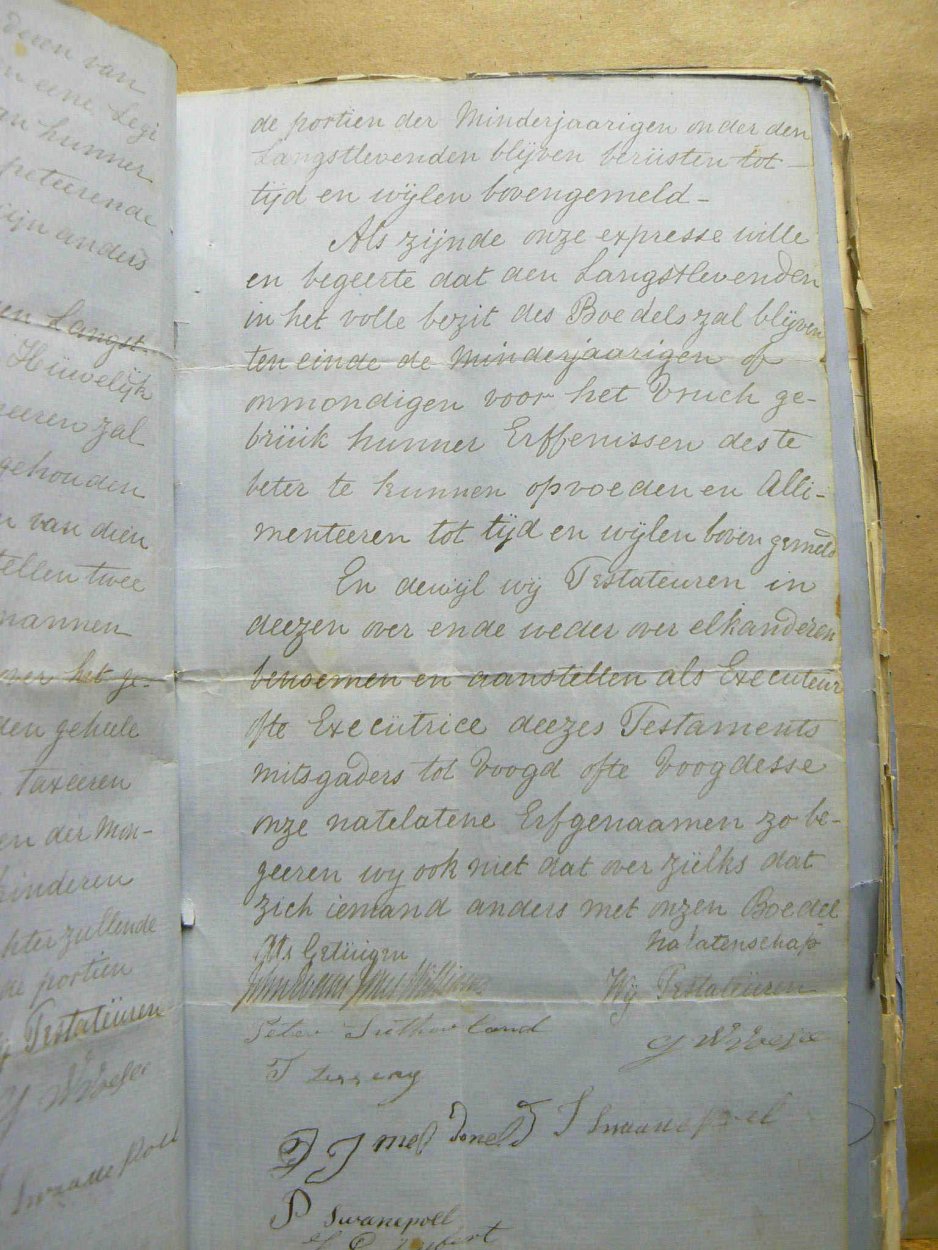 deren van
n eene Legi
an hunner
peteerende
zijn anders
en Langst-
Hüwelijk
neeren zal
gehouden
n van dien
tellen twee
mannen
over het ge-
den geheele
taxeeren
en der Mon-
kinderen
hter zullende
de portien
Testateüren
de portien der Minderjaarigen onder den
Langstlevenden blijven berüsten tot
tijd en wijlen bovengemeld -
Als zijnde onze expresse wille
en begeerte dat den Langstlevenden
in het volle bezit des Boedels zal blijven
ten einde de Minderjaarigen of
onmondigen voor het Vruch ge-
brüik hunner Erffenissen des te
beter te kunnen opvoeden en Alli-
menteeren tot tijd en wijlen boven gemeld
En dewijl wij Testateuren in
deezen over ende weder over elkanderen
benoemen en aanstellen als Executeur
ofte Execütrice deezes Testaments
mitsgaders tot Voogd ofte Voogdesse
onze natelatene Erfgenaamen zo be-
geeren wy ook niet dat over zülks dat
zich iemand anders met onzen Boedel
Nalatenschap
Als Getüigen
Wij Testateüren
Peter Sutherland
P Swanepoel